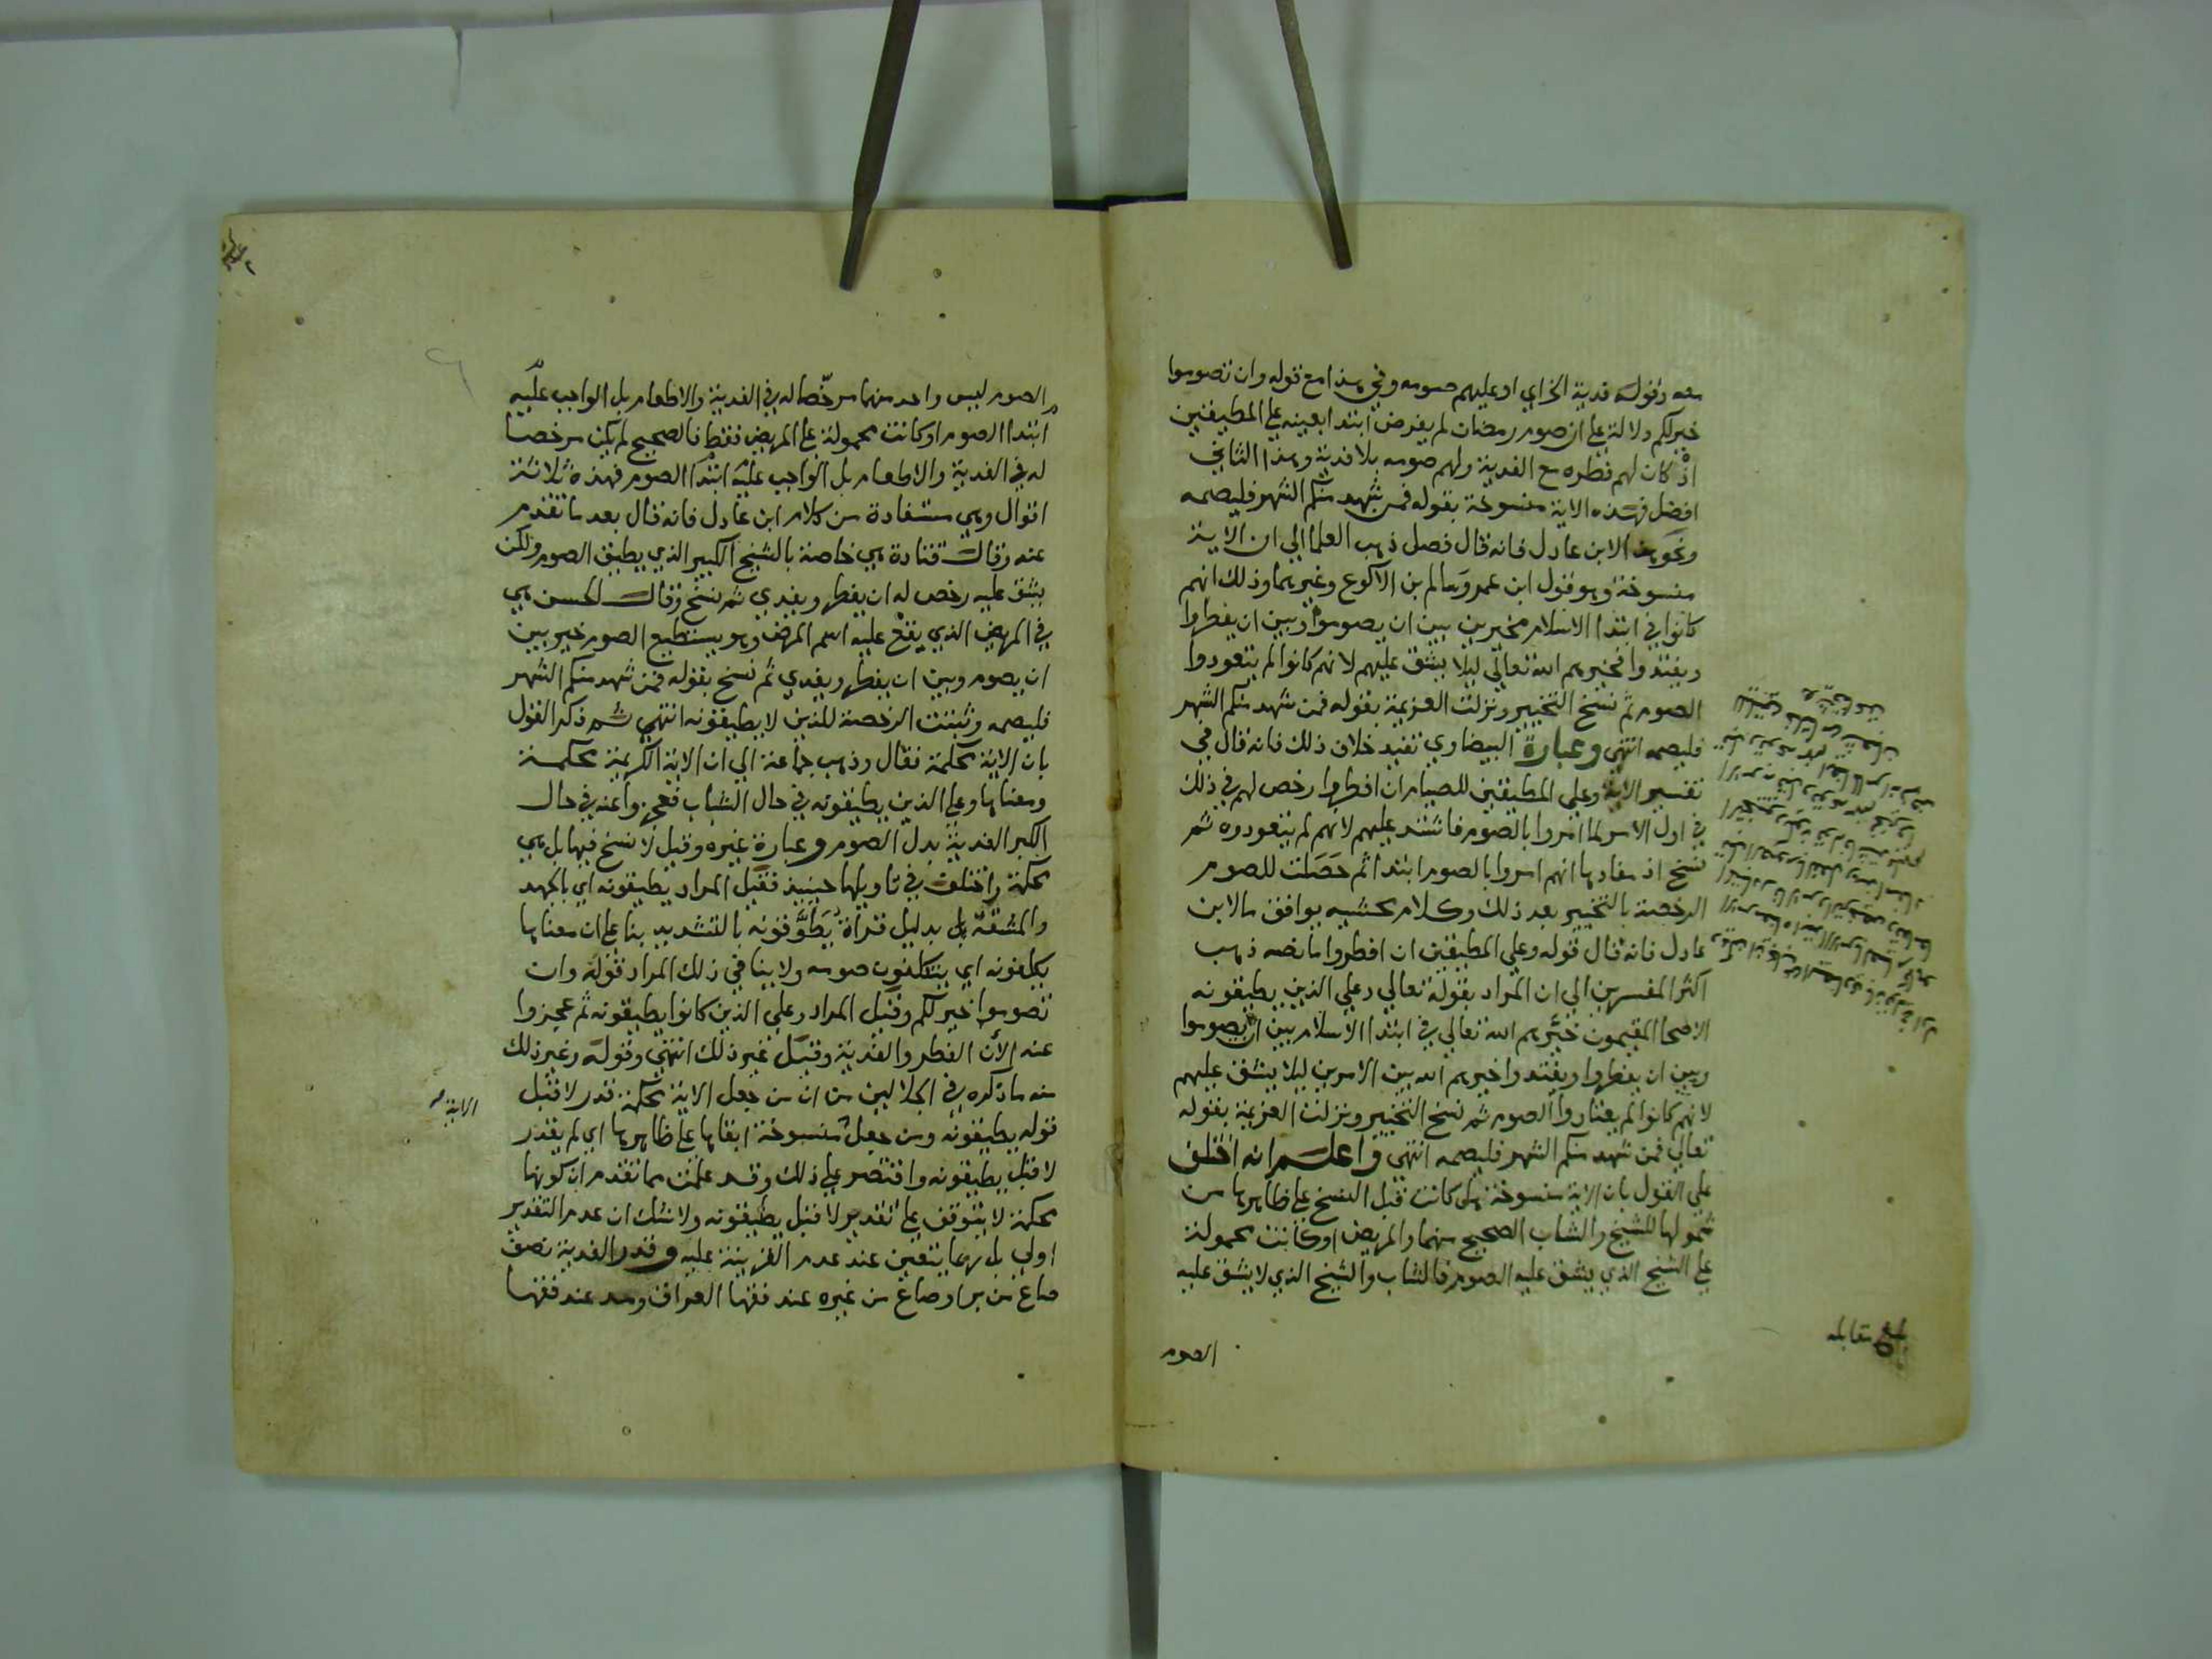 معه وقوله فدية الخ اي او عليهم صومه وفي هذا مع قوله وان تصوموا
خير لكم دلالة على ان صوم رمضان لم يفرض ابتدا بعينه على المطيقين
اذ كان لهم فطره مع الفدية ولهم صومه بلا فدية وهذا الثاني
افضل فهذه الاية منسوخة بقوله فمن شهد منكم الشهر فليصمه
ونحو هذا لابن عادل فانه قال فصل ذهب العلما الي ان الاية
منسوخة وهو قول ابن عمر وسالم بن الاكوع وغيرهما وذلك انهم
كانوا في ابتدا الاسلام مخيرين بين ان يصوموا وبين ان يفطروا
ويفتدوا فخيرهم الله تعالي ليلا يشق عليهم لانهم كانوا لم يتعودوا
الصوم ثم نسخ التخيير ونزلت العزيمة بقوله فمن شهد منكم الشهر
فليصمه انتهى وعبارة البيضاوي تفيد خلاف ذلك فانه قال في
تفسير الاية وعلي المطيقين للصيام ان افطروا رخص لهم في ذلك
في اول الامر لما امروا بالصوم فاشتد عليهم لانهم لم يتعودوه ثم
نسخ اذ مفادها انهم امروا بالصوم ابتدا ثم حصلت للصوم
الرخصة بالتخيير بعد ذلك وكلام محشيه يوافق ما لابن
عادل فانه قال قوله وعلي المطيقين ان افطروا ما نصه ذهب
اكثر المفسرين الي ان المراد بقوله تعالي وعلي الذين يطيقونه
الاصحا المقيمون خيّرهم الله تعالي في ابتدا الاسلام بين ان يصوموا
وبين ان يفطروا ويفتدوا خيرهم الله بين الامرين ليلا يشق عليهم
لانهم كانوا لم يعتادوا الصوم ثم نسخ التخيير ونزلت العزيمة بقوله
تعالي فمن شهد منكم الشهر فليصمه انتهى واعلم انه اختلف
على القول بان الاية منسوخة هل كانت قبل النسخ على ظاهرها من
شمولها للشيخ والشاب الصحيح منهما والمريض او كانت محمولة
على الشيخ الذي يشق عليه الصوم فالشاب والشيخ الذي لا يشق عليه
بلغ مقابله
الصوم
الصوم ليس واحد منهما مرخّصا له في الفدية والاطعام بل الواجب عليه
ابتدا الصوم او كانت محمولة على المريض فقط فالصحيح لم يكن مرخصا
له في الفدية والاطعام بل الواجب عليه ابتدا الصوم فهذه ثلاثة
اقوال وهي مستفادة من كلام ابن عادل فانه قال بعد ما تقدم
عنه وقال قتادة هي خاصة بالشيخ الكبير الذي يطيق الصوم ولكن
يشق عليه رخص له ان يفطر ويفدي ثم نسخ وقال الحسن هي
في المريض الذي يقع عليه اسم المرض وهو يستطيع الصوم خير بين
ان يصوم وبين ان يفطر ويفدي ثم نسخ بقوله فمن شهد منكم الشهر
فليصمه وثبتت الرخصة للذين لا يطيقونه انتهى ثم ذكر القول
بان الاية محكمة فقال وذهب جماعة الي ان الاية الكريمة محكمة
ومعناها وعلي الذين يطيقونه في حال الشباب فعجزوا عنه في حال
الكبر الفدية بدل الصوم وعبارة غيره وقيل لا نسخ فيها بل هي
محكمة واختلف في تاويلها حينيذ فقيل المراد يطيقونه اي بالجهد
والمشقة بدليل قراة يُطَوَّقونه بالتشديد بنا على ان معناها
يكلفونه اي يتكلفون صومه ولا ينافي ذلك المراد قوله وان
تصوموا خير لكم وقيل المراد وعلي الذين كانوا يطيقونه ثم عجزوا
عنه الان الفطر والفدية وقيل غير ذلك انتهى وقوله وغير ذلك
منه ما ذكره في الجلالين من ان من جعل الاية محكمة قدر لا قبل
قوله يطيقونه ومن جعل منسوخة ابقاها على ظاهرها اي لم يقدر
الاية صح
لا قبل يطيقونه واقتصر على ذلك وقد علمت مما تقدم ان كونها
محكمة لا يتوقف على تقدير لا قبل يطيقونه ولا شك ان عدم التقدير
اولي بل ربما يتعين عند عدم القرينة عليه وقدر الفدية نصف
صاع من بر او صاع من غيره عند فقها العراق ومد عند فقها